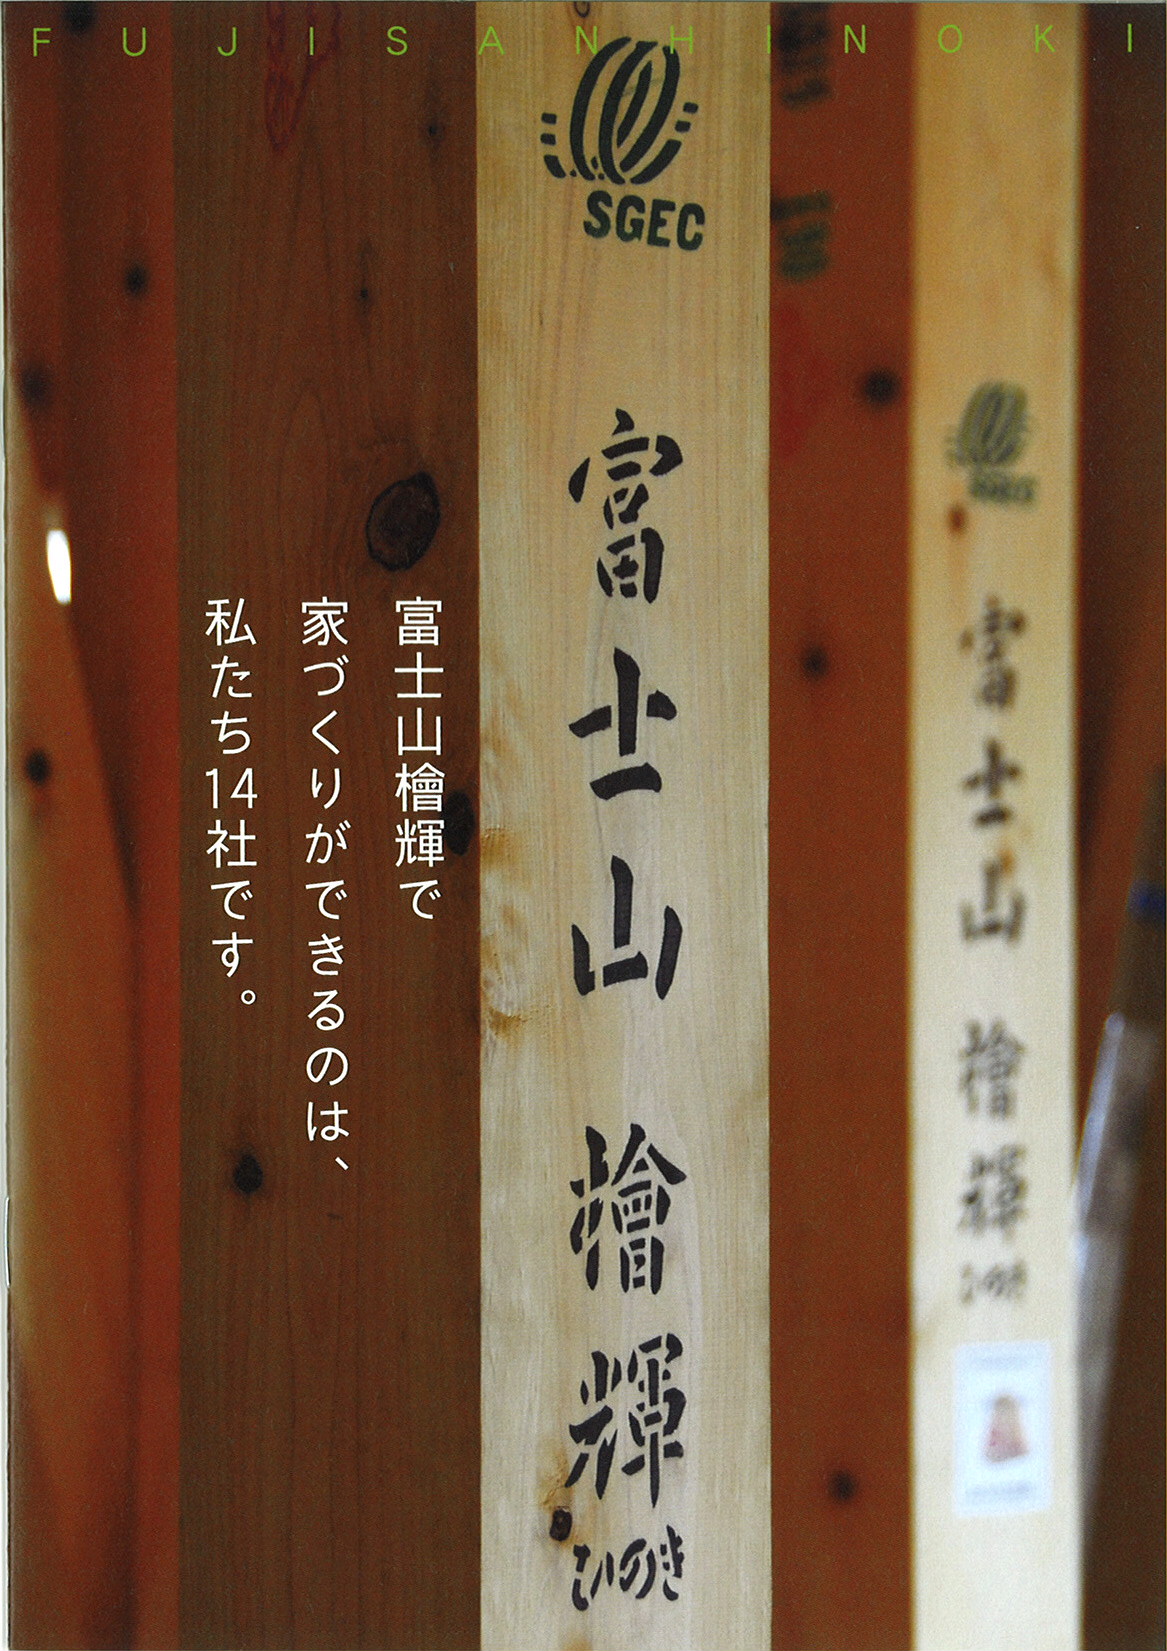 FUJISANHINOKI
SGEC
富士山檜輝
ひのき
富士山檜輝で
家づくりができるのは、
私たち14社です。
富士山檜輝
ひのき